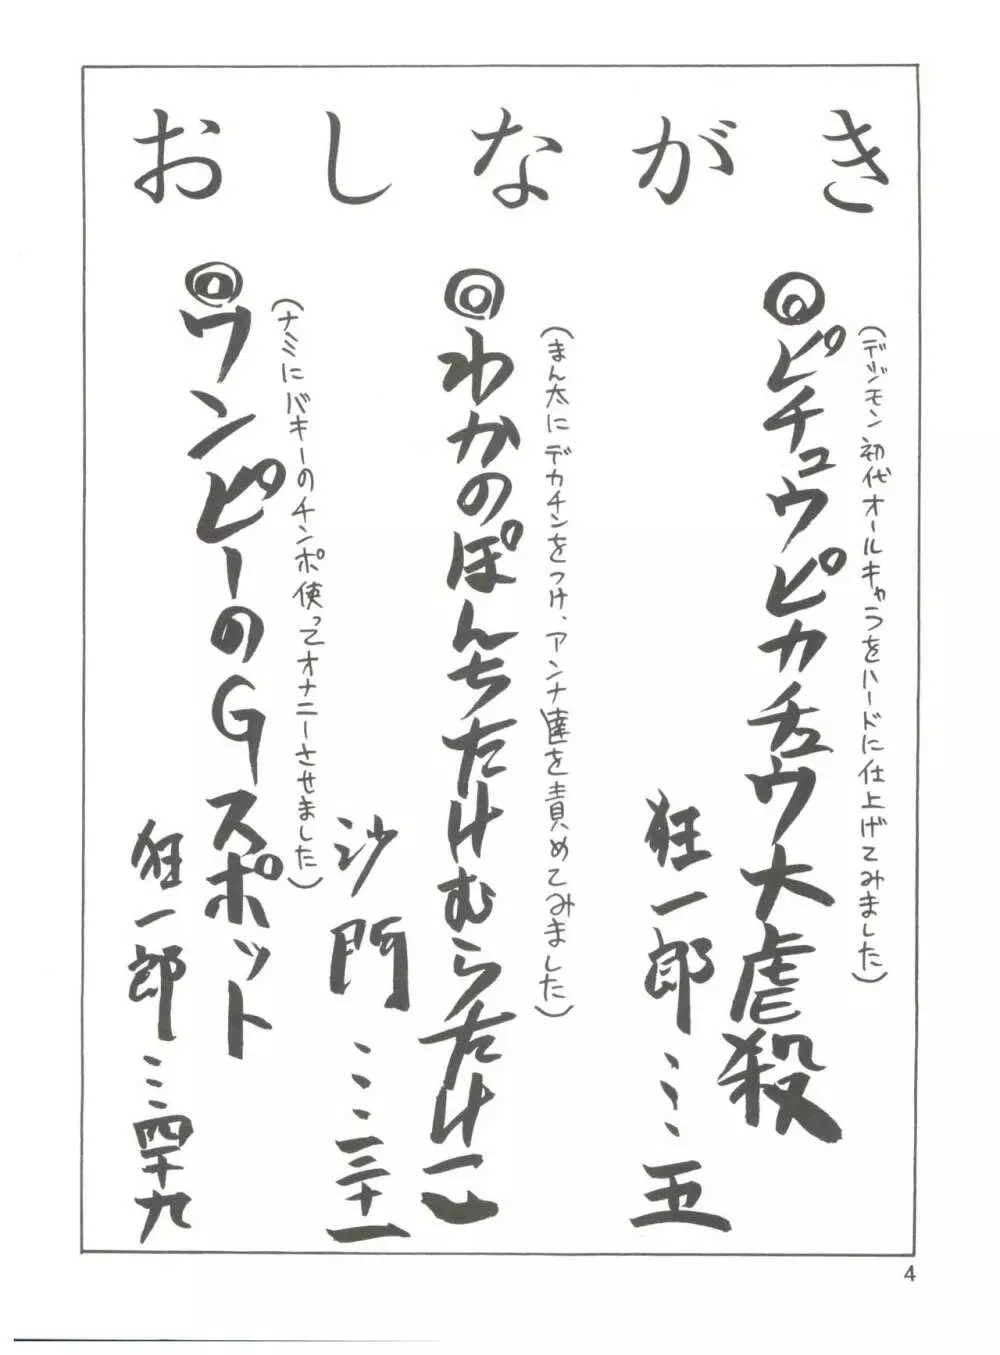 おしながき
(デジモン初代オールキャラをハードに仕上げてみました)
◎ピチュウピカチュウ大虐殺
狂一郎……五
(まん太にデカチンをつけ、アンナ達を責めてみました)
◎わかのぽんちたけむらたけ一
沙門……三十一
(ナミにバキーのチンポ使ってオナニーさせました)
◎ワンピーのGスポット
狂一郎……四十九
4